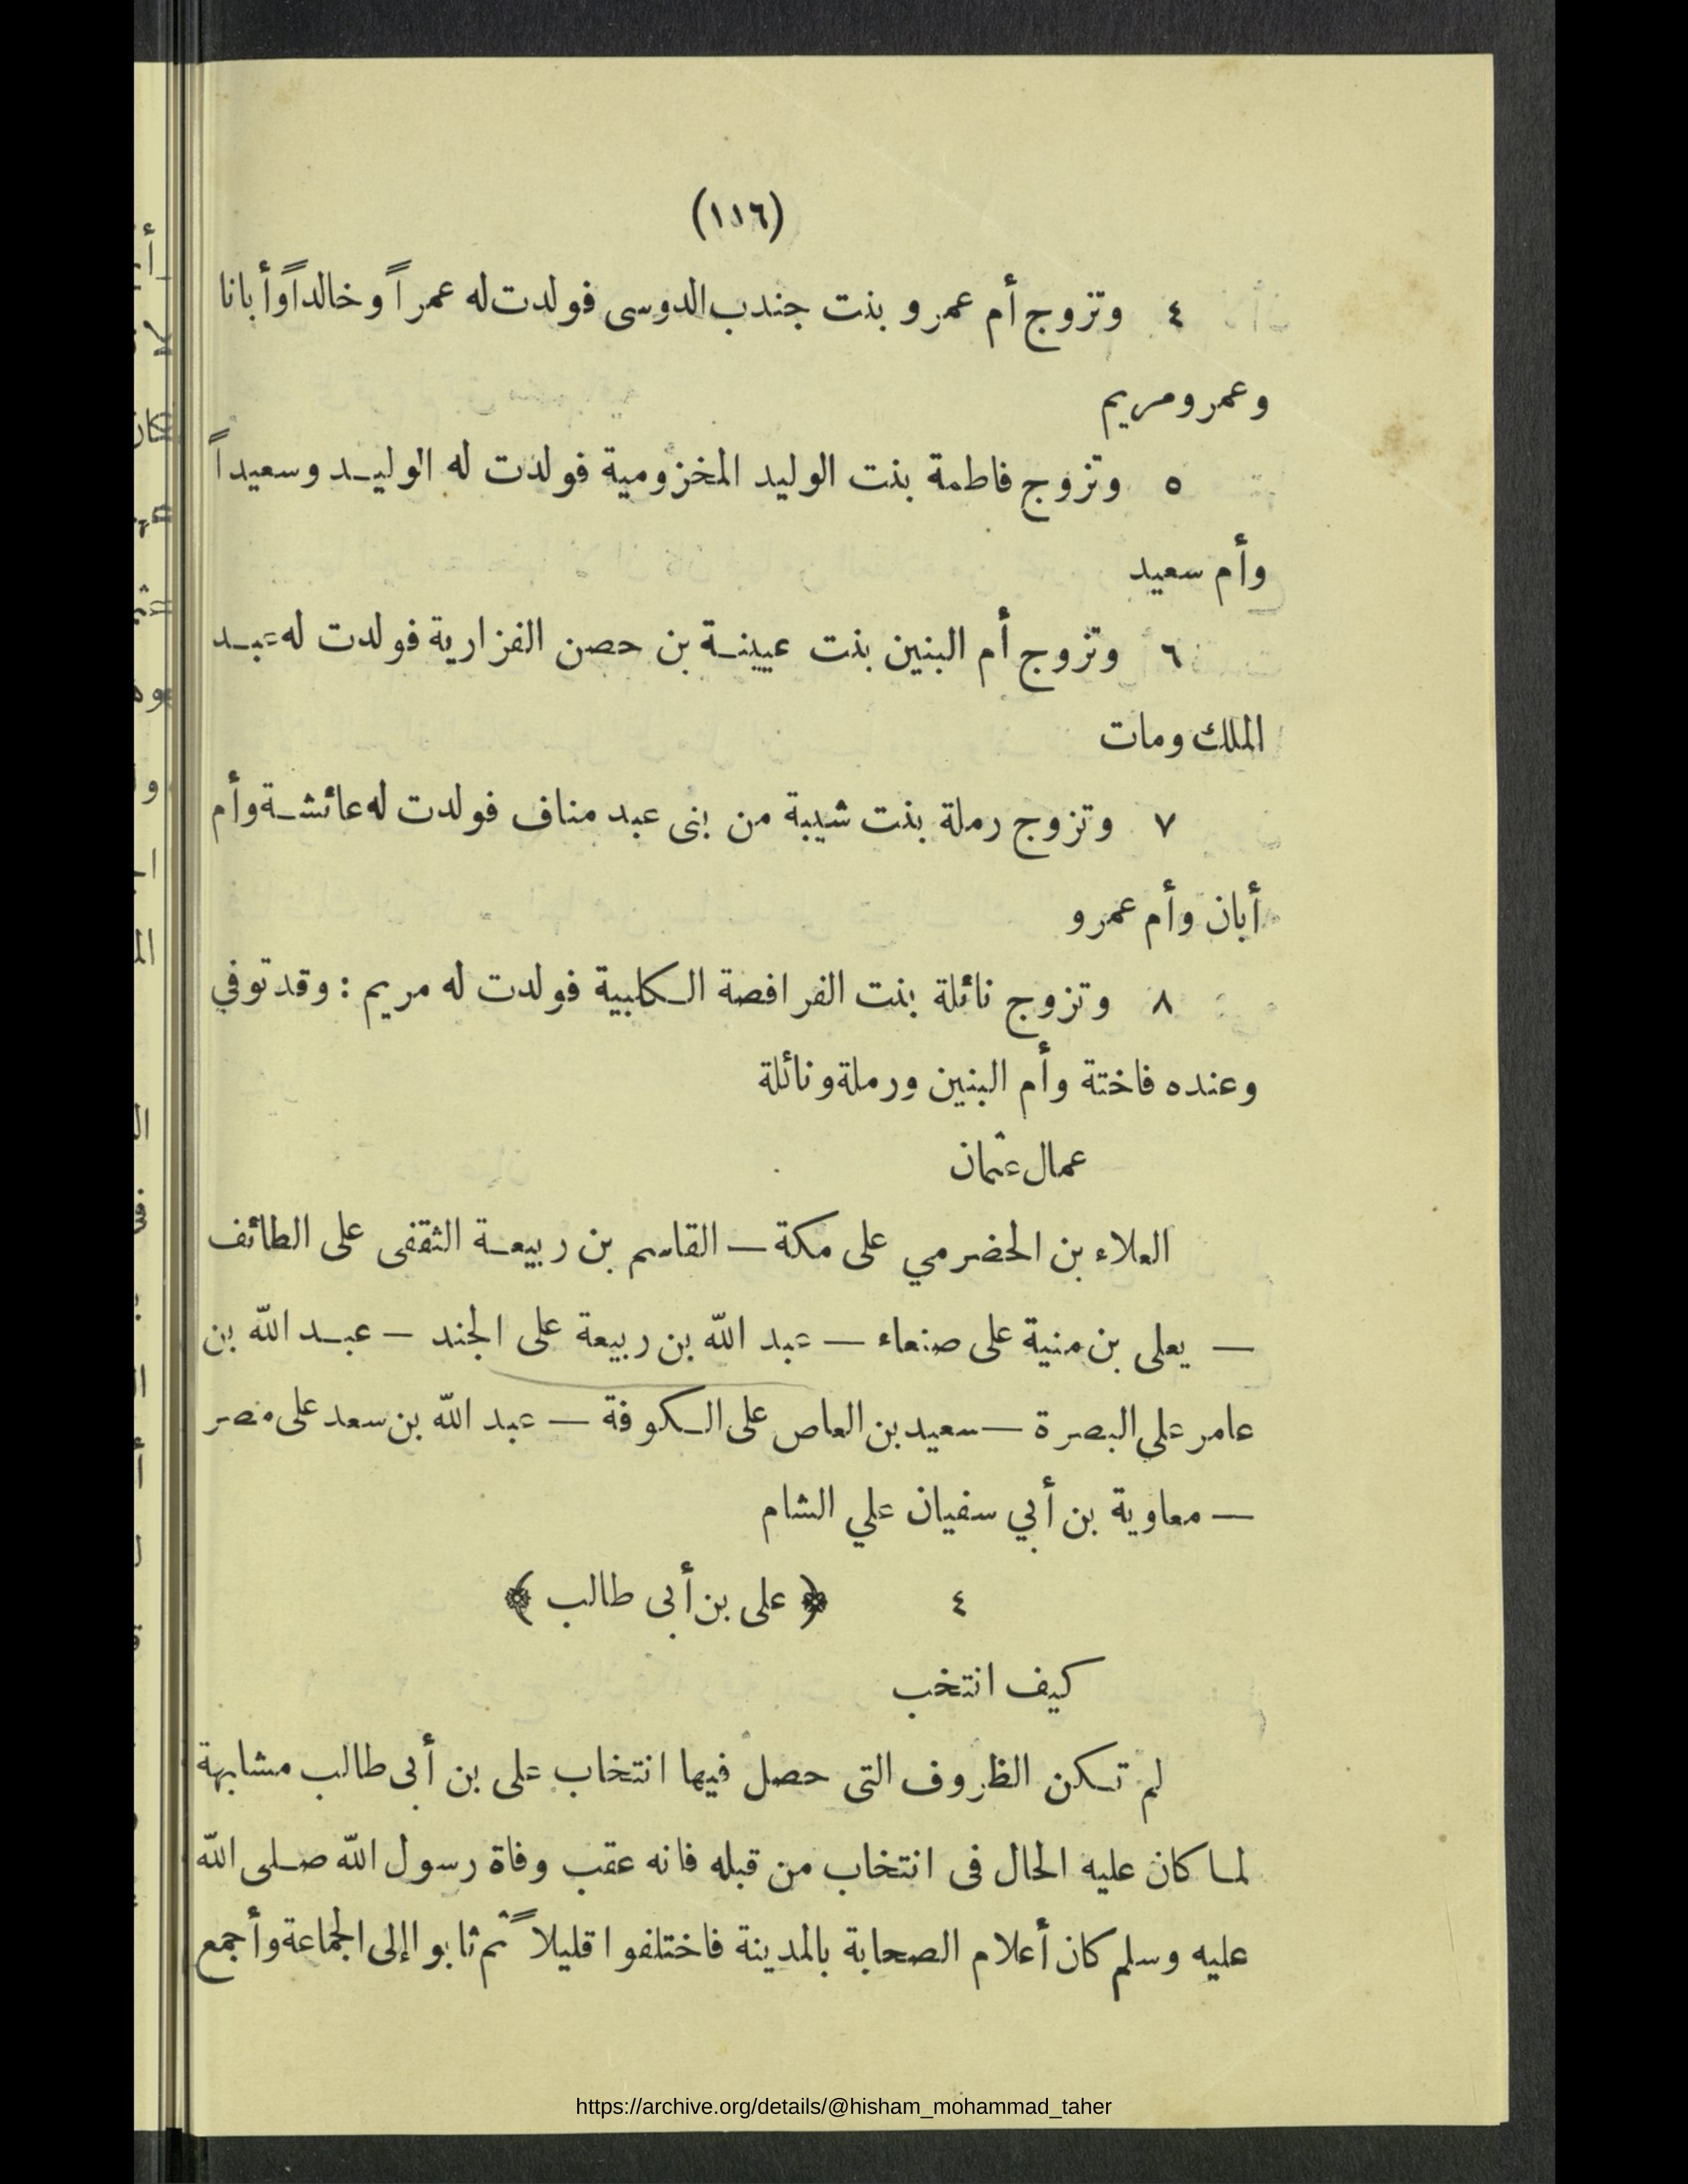 (١١٦)
٤ وتزوج أم عمرو بنت جندب الدوسى فولدت له عمراً وخالداً وأبانا
وعمر ومريم
٥ وتزوج فاطمة بنت الوليد المخزومية فولدت له الوليد وسعيداً
وأم سعيد
٦ وتزوج أم البنين بنت عيينة بن حصن الفزارية فولدت له عبد
الملك ومات
٧ وتزوج رملة بنت شيبة من بنى عبد مناف فولدت له عائشة وأم
أبان وأم عمرو
٨ وتزوج نائلة بنت الفرافصة الكلبية فولدت له مريم : وقد توفي
وعنده فاختة وأم البنين ورملة ونائلة
عمال عثمان
العلاء بن الحضرمي على مكة — القاسم بن ربيعة الثقفى على الطائف
— يعلى بن منية على صنعاء — عبد الله بن ربيعة على الجند — عبد الله بن
عامر علي البصرة — سعيد بن العاص على الكوفة — عبد الله بن سعد على مصر
— معاوية بن أبي سفيان علي الشام
٤ ﴿ على بن أبى طالب ﴾
كيف انتخب
لم تكن الظروف التى حصل فيها انتخاب على بن أبى طالب مشابهة
لما كان عليه الحال فى انتخاب من قبله فانه عقب وفاة رسول الله صلى الله
عليه وسلم كان أعلام الصحابة بالمدينة فاختلفوا قليلاً ثم ثابوا إلى الجماعة وأجمع
https://archive.org/details/@hisham_mohammad_taher